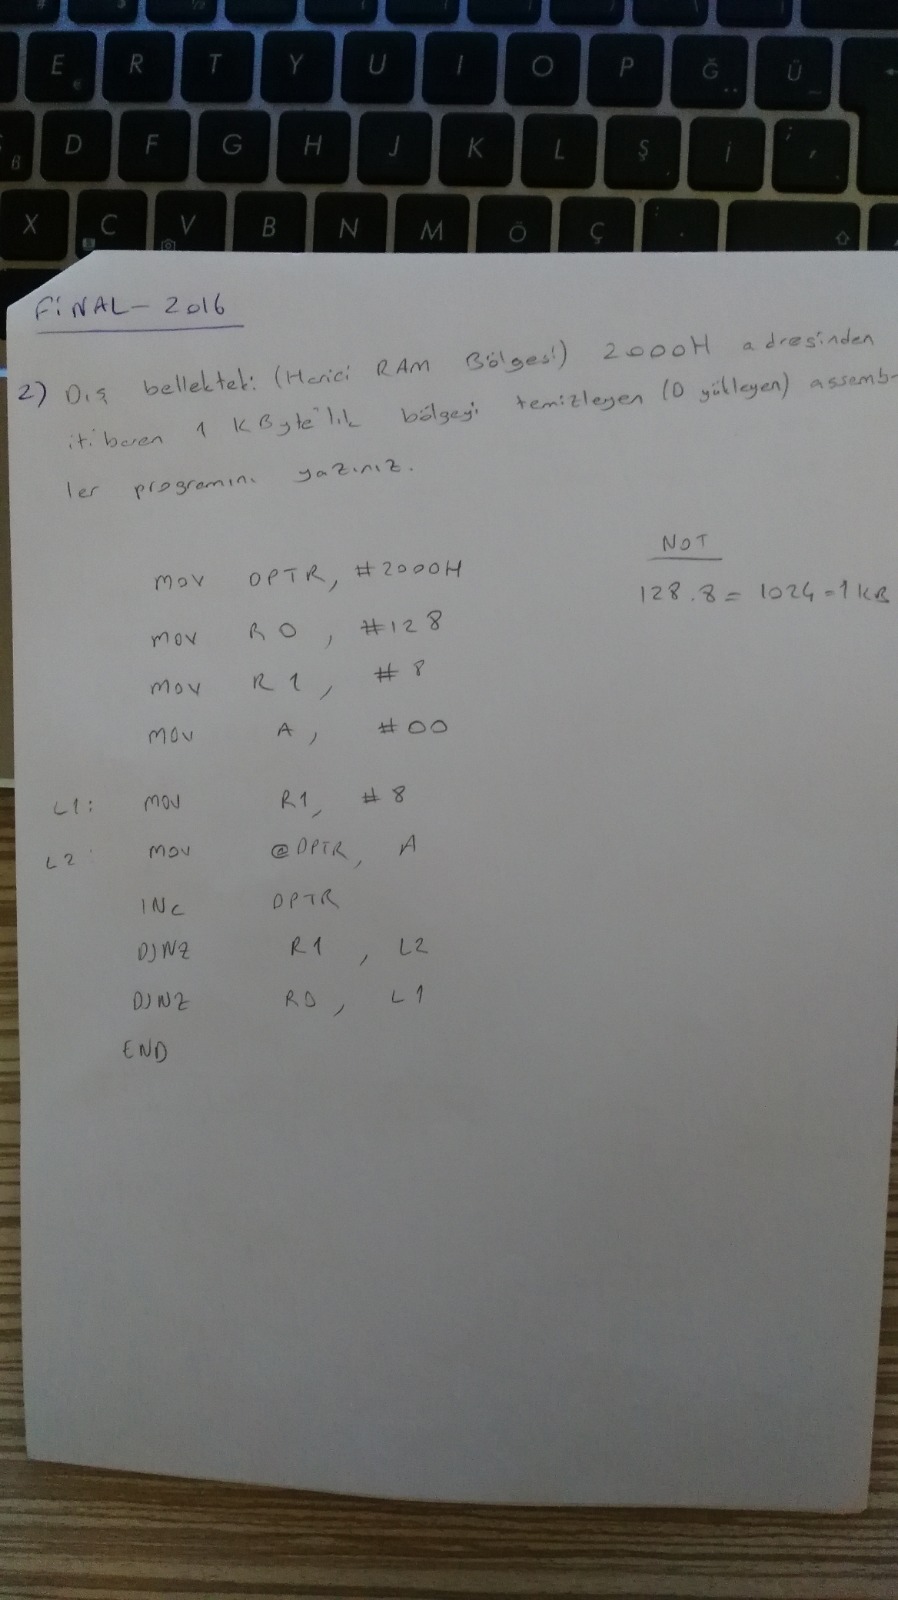 E R T Y U I O P Ğ Ü
D F G H J K L Ş İ
X C V B N M Ö Ç
FİNAL - 2016
2) Dış bellekteki (Harici RAM Bölgesi) 2000H adresinden
itibaren 1 KByte'lık bölgeyi temizleyen (0 yükleyen) assemb-
ler programını yazınız.
NOT
128.8 = 1024 = 1KB
mov DPTR, #2000H
mov R0, #128
mov R1, #8
mov A, #00
L1: mov R1, #8
L2: mov @DPTR, A
INC DPTR
DJNZ R1, L2
DJNZ R0, L1
END